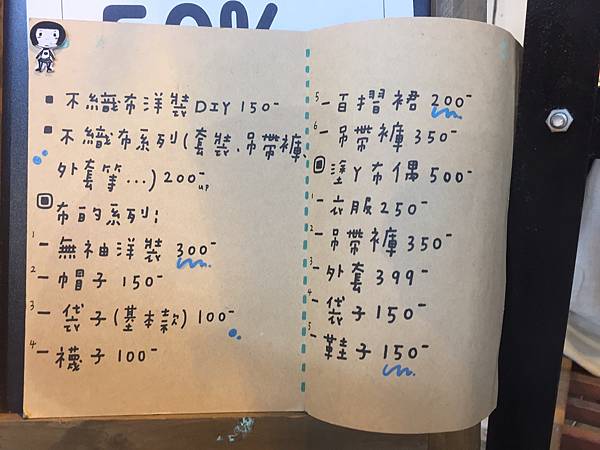 50%
■ 不織布洋裝DIY 150-
■ 不織布系列(套裝、吊帶褲、
外套等...) 200-up
布的系列:
1 - 無袖洋裝 300-
2 - 帽子 150-
3 - 袋子(基本款) 100-
4 - 襪子 100-
5 - 百摺裙 200-
6 - 吊帶褲 350-
塗丫布偶 500-
1 - 衣服 250-
2 - 吊帶褲 350-
3 - 外套 399-
4 - 袋子 150-
5 - 鞋子 150-